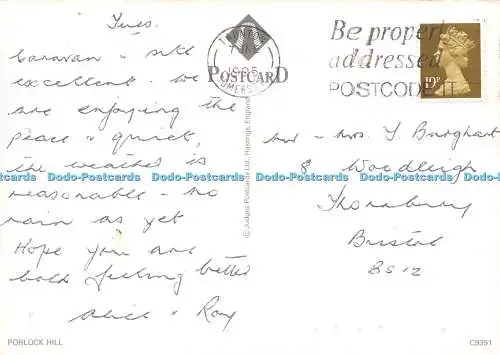 Tues.
Caravan & site
excellent. We
are enjoying the
peace & quiet,
the weather is
reasonable - no
rain as yet
Hope you are
both feeling better
Alice & Ray
TAUNTON
1985
SOMERSET
POSTCARD
Be properly
addressed
POSTCODE IT
19P
Mr & Mrs J Burghart
8 Woodleigh
Thornbury
Bristol
BS12
© Judges Postcards Ltd., Hastings, England
Dodo-Postcards Dodo-Postcards Dodo-Postcards Dodo-Postcards Dodo-Postcards
PORLOCK HILL
C9391